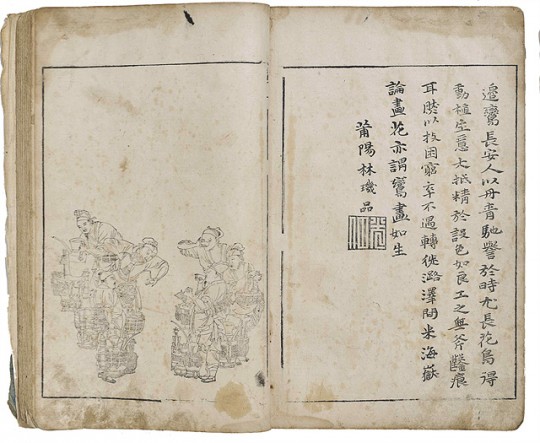 邊鸞長安人以丹青馳譽於時尤長花鳥得
動植生意大抵精於設色如良工之無斧鑿痕
耳然以技困窮卒不遇轉徙潞澤間米海嶽
論畫花亦謂鸞畫如生
莆陽林璣品